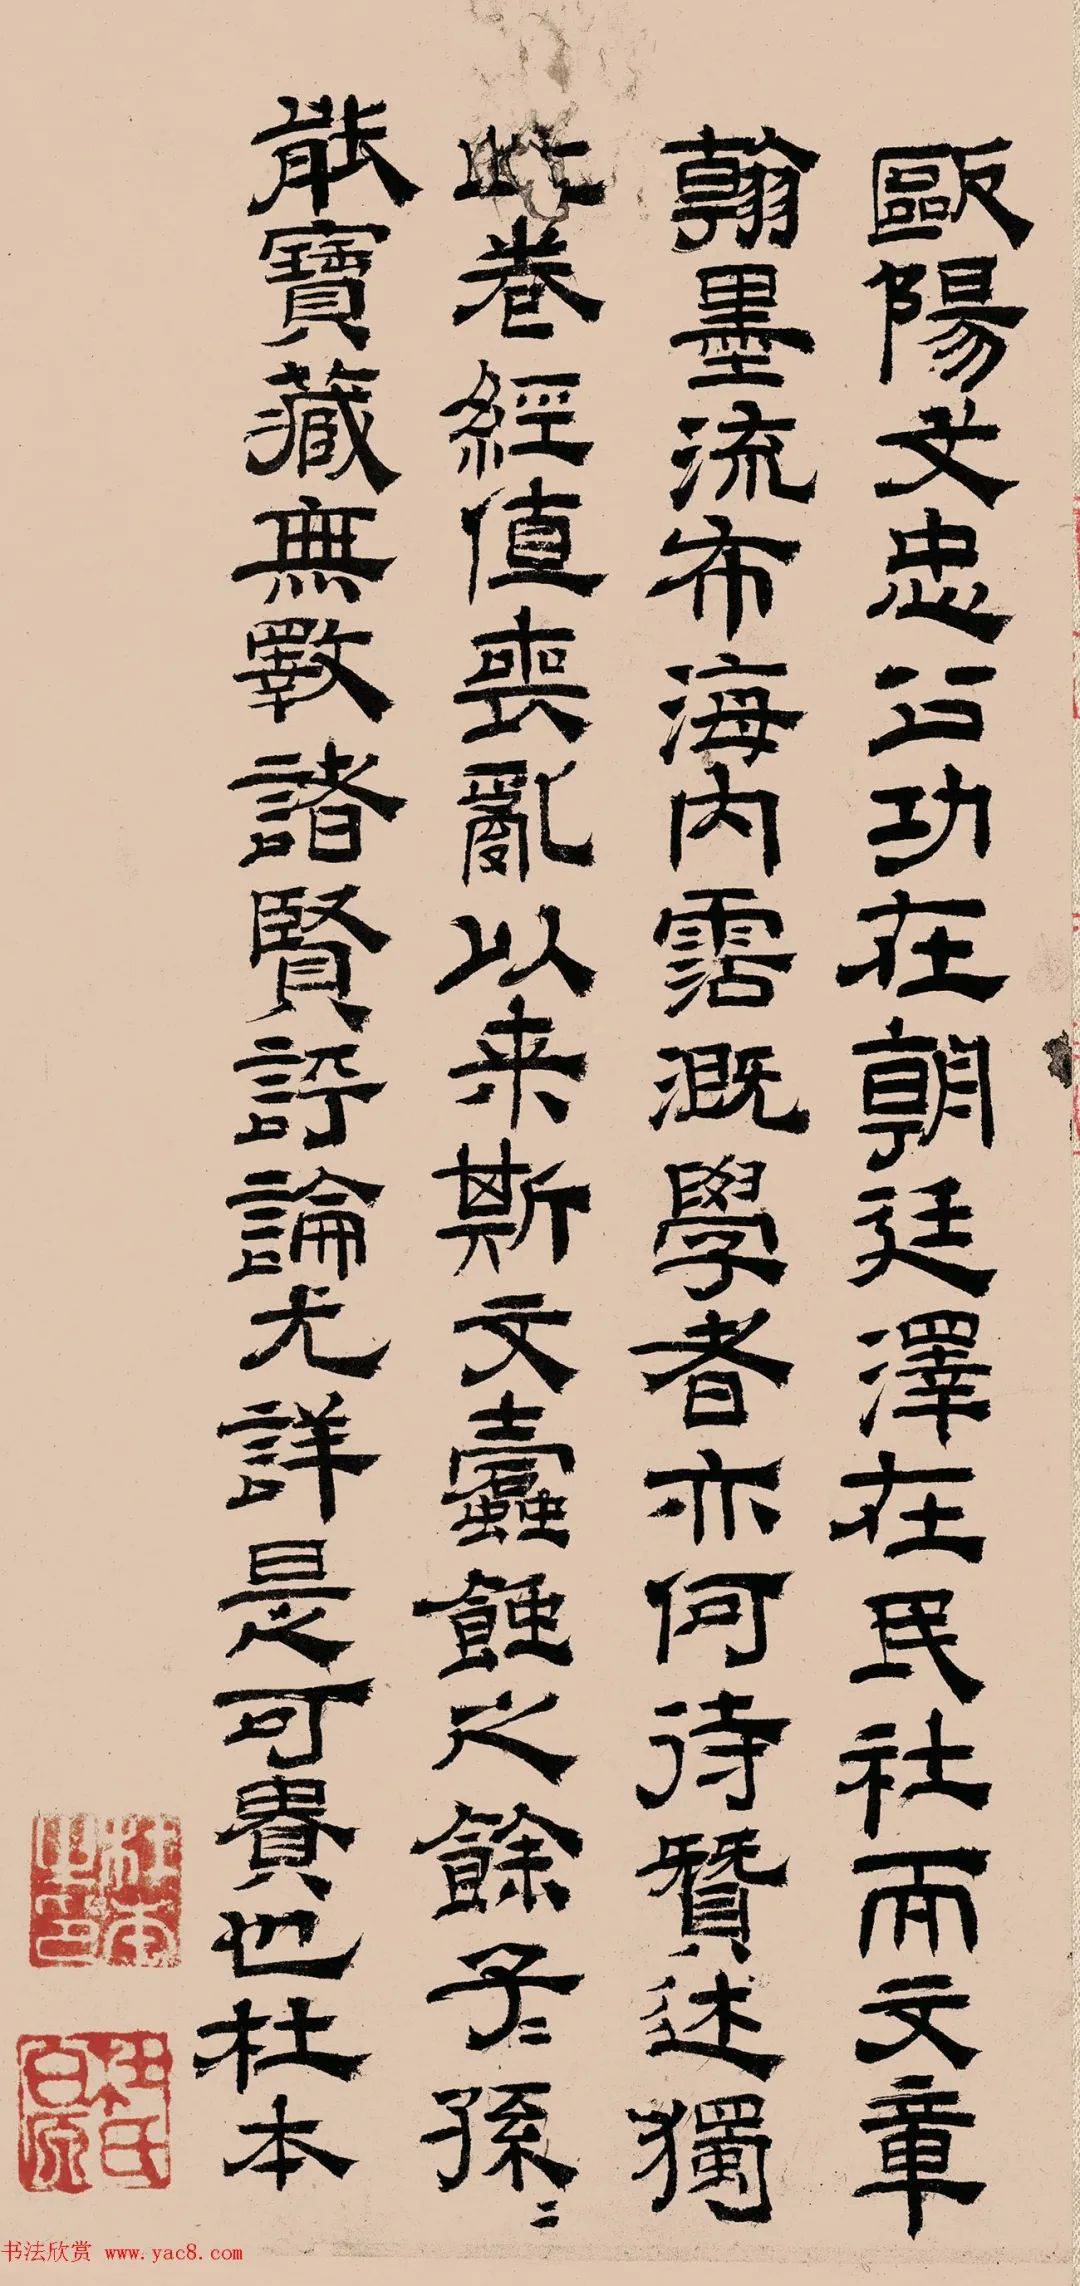 歐陽文忠公功在朝廷澤在民社而文章
翰墨流布海內霑溉學者亦何待贊述獨
此卷經值喪亂以来斯文蠹蝕之餘子〻孫〻
能寶藏無斁諸賢評論尤詳是可貴也杜本
杜本之印
伊氏百原
书法欣赏 www.yac8.com